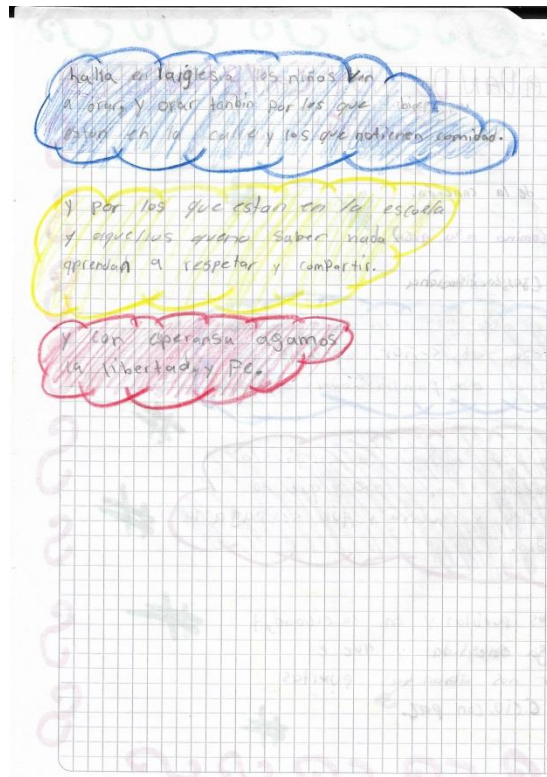 halla en laiglesia los niños ven
a orar, y orar tanbin por los que
estan en la calle y los que notienen comidad.
y por los que estan en la escuela
y aquellos queno saber nada
aprendan a respetar y compartir.
y con eperansa agamos
la libertad, y Fe.